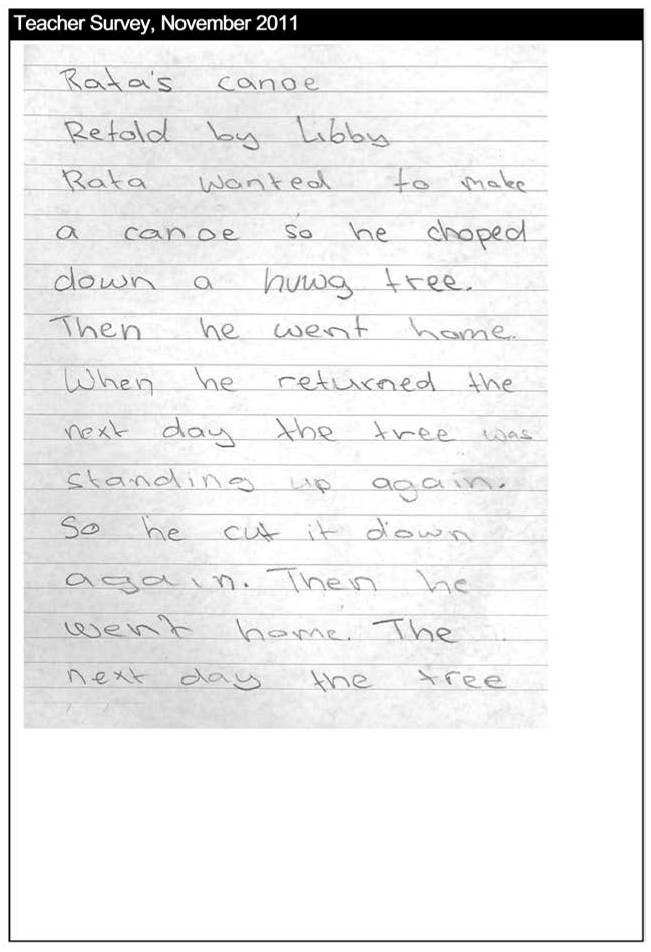 Teacher Survey, November 2011
Rata's canoe
Retold by Libby
Rata wanted to make
a canoe so he choped
down a huwg tree.
Then he went home.
When he returned the
next day the tree was
standing up again.
So he cut it down
again. Then he
went home. The
next day the tree